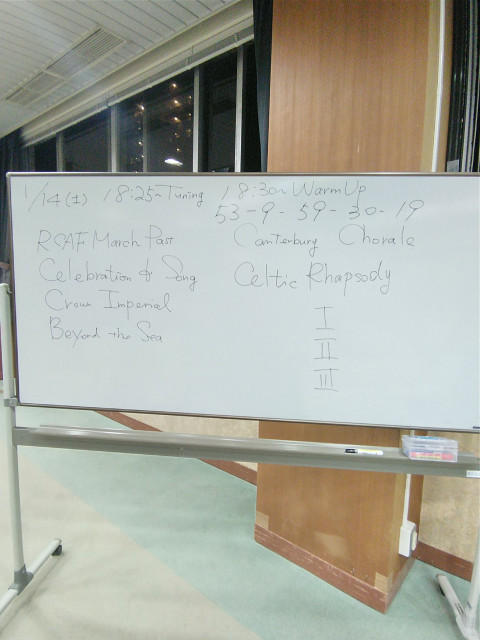 1/14(土) 18:25~Tuning 18:30~WarmUp
53-9-59-30-19
RCAF March Past
Celebration & Song
Crown Imperial
Beyond the Sea
Canterbury Chorale
Celtic Rhapsody
I
II
III